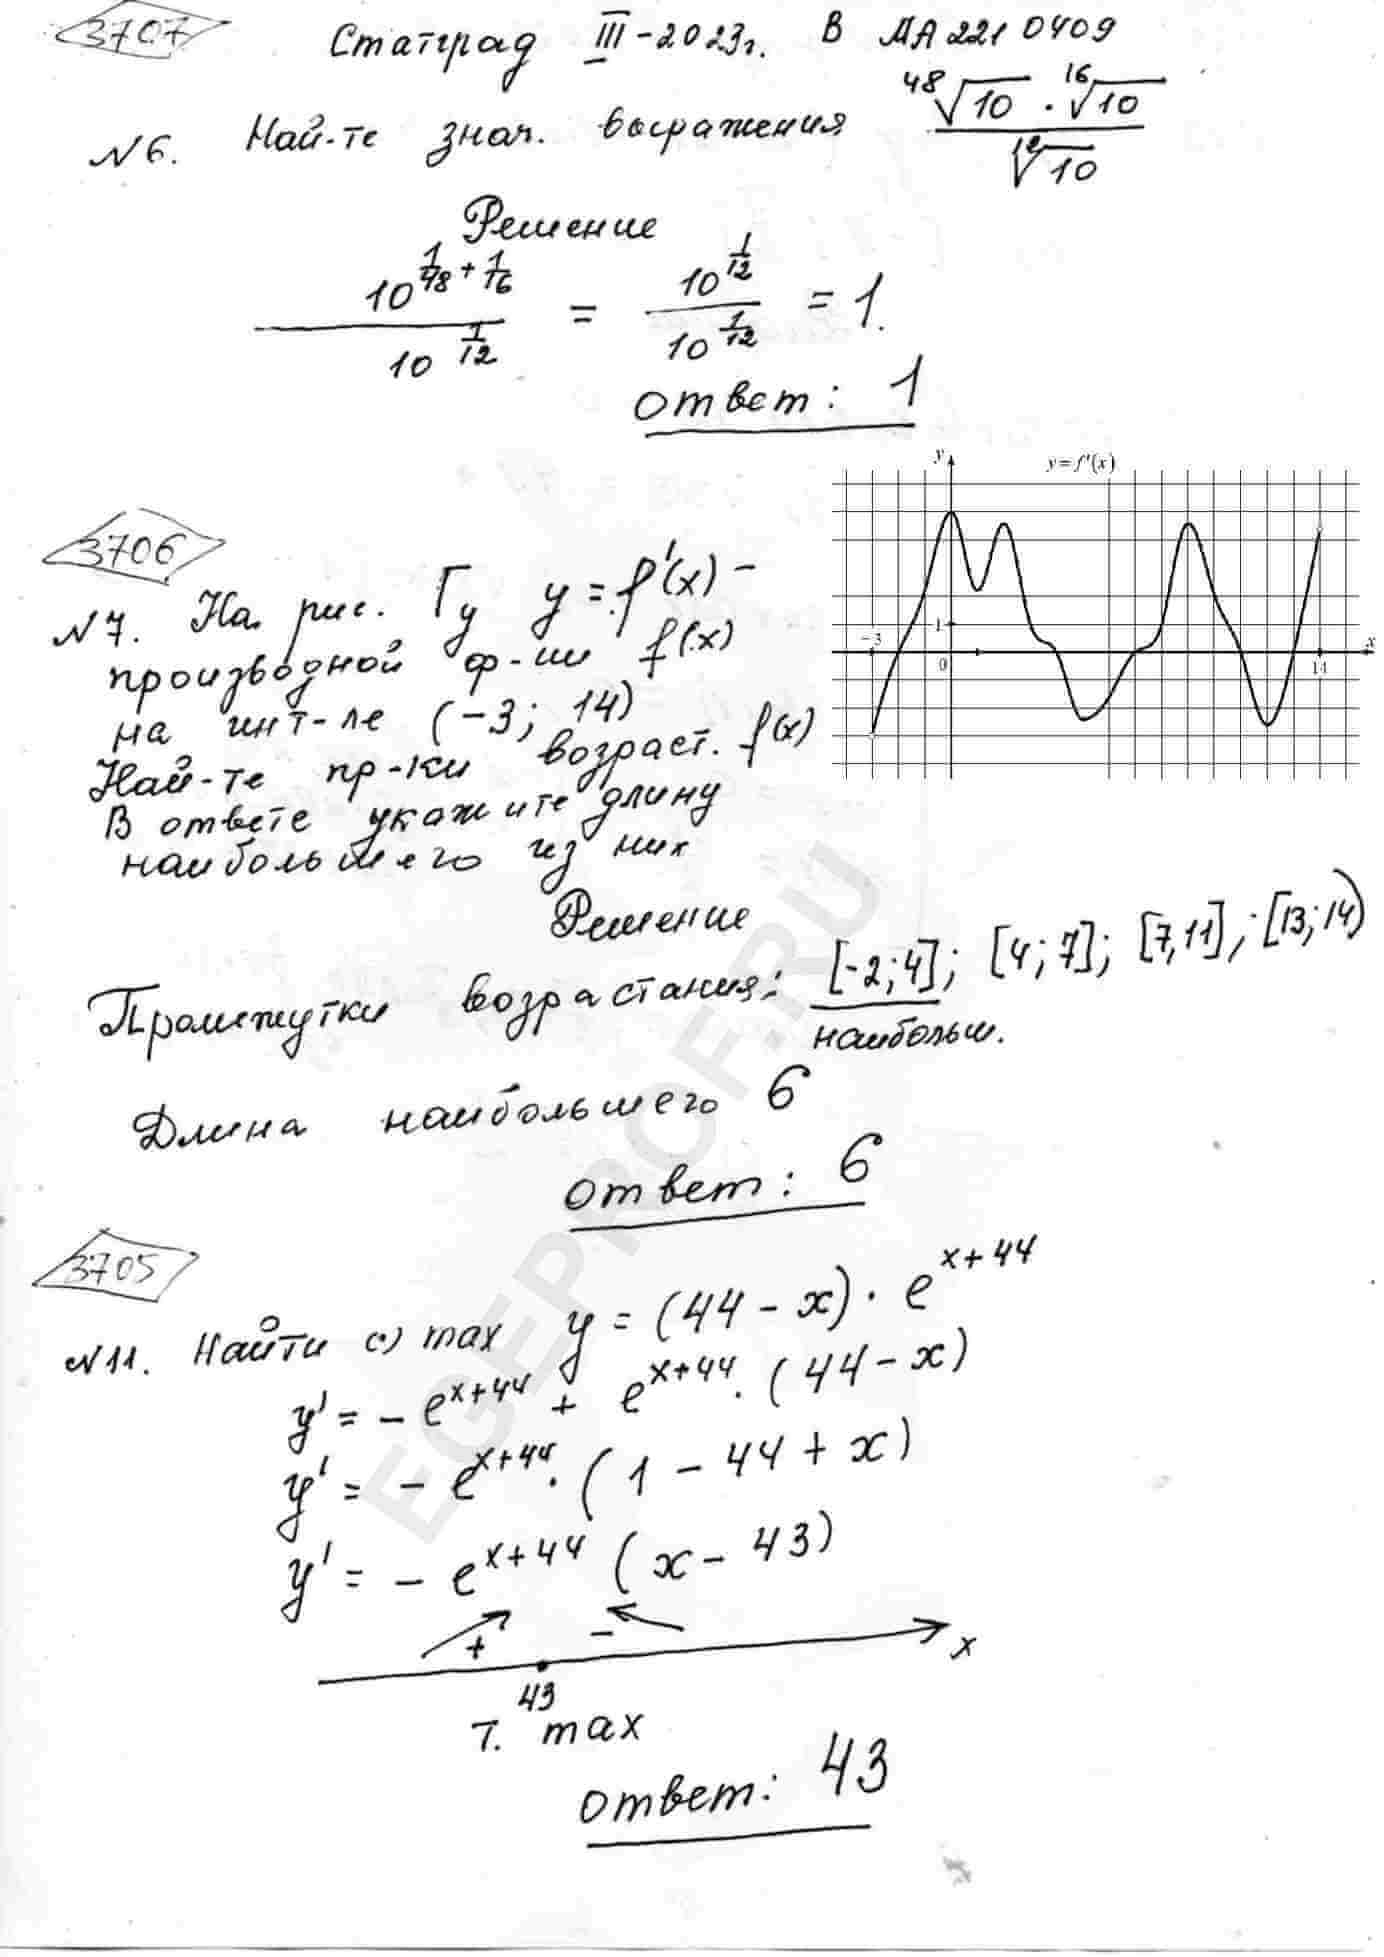 3707
Статград III - 2023г. В МА2210409
N 6. Най-те знач. выражения \frac{\sqrt[48]{10} · \sqrt[16]{10}}{\sqrt[12]{10}}
Решение
\frac{10^{\frac{1}{48} + \frac{1}{16}}}{10^{\frac{1}{12}}} = \frac{10^{\frac{1}{12}}}{10^{\frac{1}{12}}} = 1.
Ответ: 1
3706
N 7. На рис. Гу y = f'(x) -
производной ф-ии f(x)
на инт-ле (-3; 14)
Най-те пр-ки возраст. f(x)
В ответе укажите длину
наибольшего из них
y
y = f'(x)
1
-3
0
14
x
Решение
Промежутки возрастания: [-2; 4]; [4; 7]; [7, 11]; [13; 14)
наибольш.
Длина наибольшего 6
Ответ: 6
3705
N 11. Найти max y = (44 - x) · e^{x+44}
y' = - e^{x+44} + e^{x+44} · (44 - x)
y' = - e^{x+44} · (1 - 44 + x)
y' = - e^{x+44} (x - 43)
+ -
x
43
т. max
Ответ: 43
EGEPROF.RU